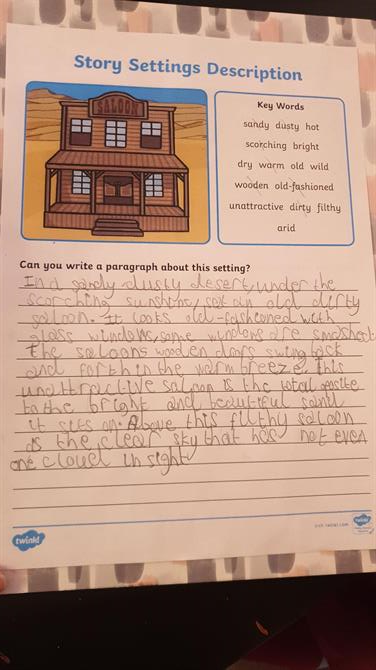 Story Settings Description
SALOON
Key Words
sandy dusty hot
scorching bright
dry warm old wild
wooden old-fashioned
unattractive dirty filthy
arid
Can you write a paragraph about this setting?
In a sandy dusty desert, under the
scorching sunshine, sat an old dirty
saloon. It looks old-fashioned with
glass windows, some windows are smashed.
The saloons wooden doors swing back
and forth in the warm breeze. This
unattractive saloon is the total oposite
to the bright and beautiful sand
it sits on. Above this filthy saloon
is the clear sky that has not even
one cloud in sight
twinkl
visit twinkl.com
twinkl